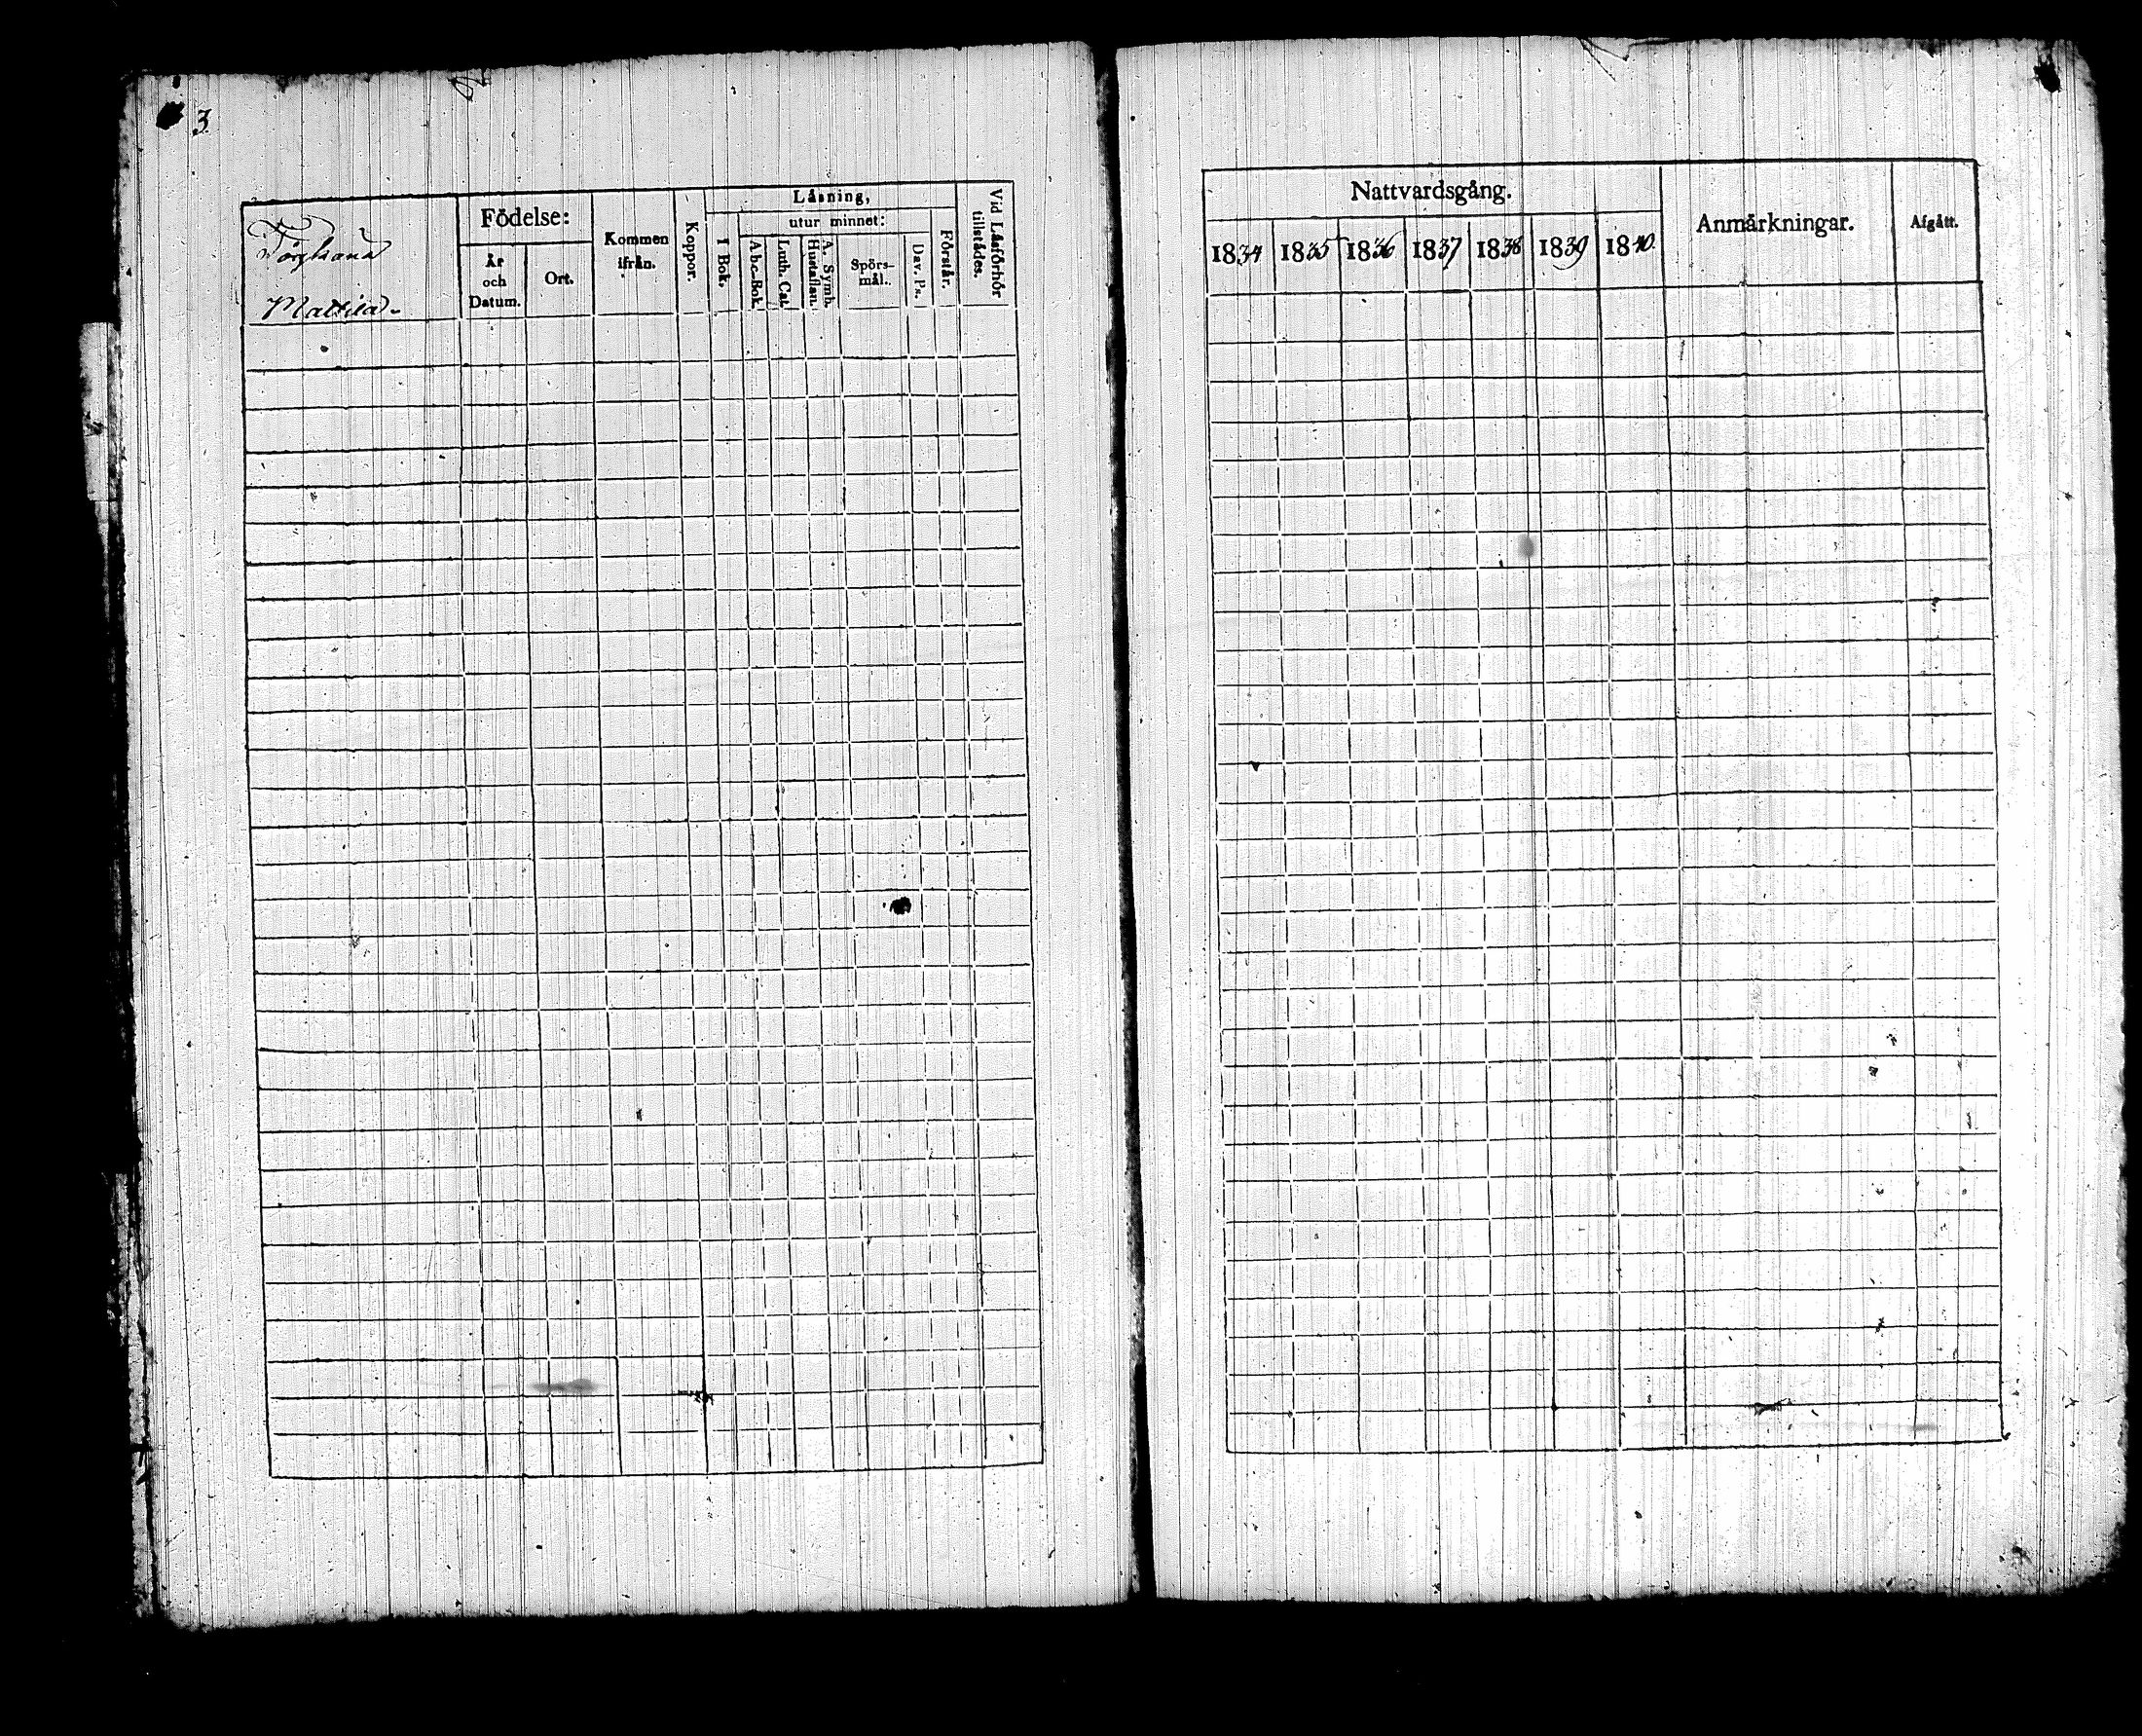 3
Mattila.
Födelse:
År
och
Datum.
Ort.
Kommen
ifrån.
Koppor.
Låsning,
I Bok.
utur minnet:
A b c-Bok.
Luth. Cat.
A. Symb.
Hustaflan.
Spörs-
mål.
Dav. Ps.
Förstår.
Vid Låsförhör
tillstådes.
Nattvardsgång.
1834 1835 1836 1837 1838 1839 1840
Anmärkningar.
Afgått.